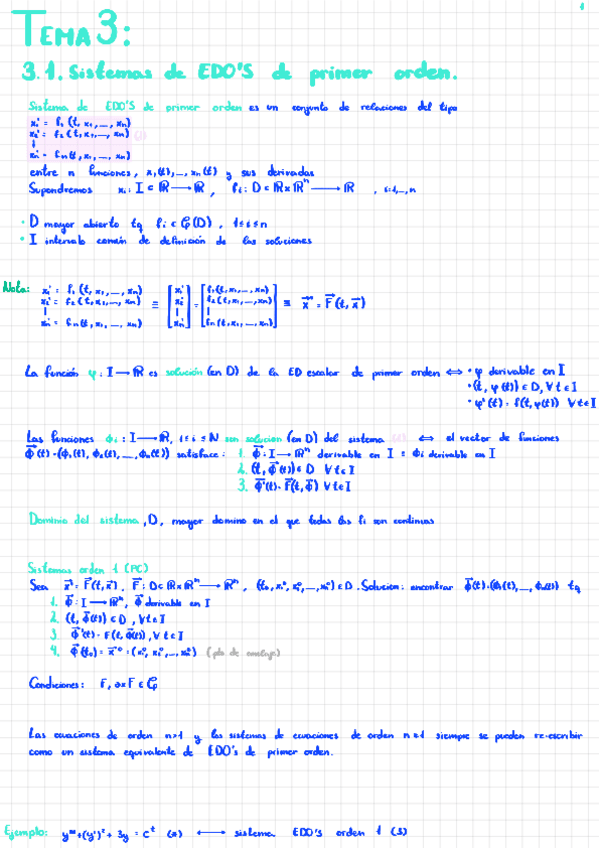 1
TEMA 3:
3.1. Sistemas de EDO'S de primer orden.
Sistema de EDO'S de primer orden es un conjunto de relaciones del tipo
x₁' = f₁ (t, x₁, ..., xₙ)
x₂' = f₂ (t, x₁, ..., xₙ) (1)
xₙ' = fₙ (t, x₁, ..., xₙ)
entre n funciones, x₁(t), ..., xₙ(t) y sus derivadas
Supondremos xᵢ: I ⊂ ℝ → ℝ, fᵢ: D ⊂ ℝ x ℝⁿ → ℝ, i=1,...,n
• D mayor abierto tq fᵢ ∈ (D), 1≤i≤n
• I intervalo común de definición de las soluciones
Nota: x₁' = f₁ (t, x₁, ..., xₙ)
x₂' = f₂ (t, x₁, ..., xₙ) ≡ [x₁' x₂' xₙ'] = [f₁(t, x₁, ..., xₙ) f₂(t, x₁, ..., xₙ) fₙ(t, x₁, ..., xₙ)] ≡ x⃗' = F⃗(t, x⃗)
xₙ' = fₙ (t, x₁, ..., xₙ)
La función φ: I → ℝ es solución (en D) de la ED escalar de primer orden ⟺ • φ derivable en I
• (t, φ(t)) ∈ D, ∀ t ∈ I
• φ'(t) = f(t, φ(t)) ∀ t ∈ I
Las funciones ϕᵢ: I → ℝ, 1≤i≤N son solucion (en D) del sistema (1) ⟺ el vector de funciones
ϕ⃗(t) = (ϕ₁(t), ϕ₂(t), ..., ϕₙ(t)) satisface: 1. ϕ⃗: I → ℝⁿ derivable en I ≡ ϕᵢ derivable en I
2. (t, ϕ⃗(t)) ∈ D ∀ t ∈ I
3. ϕ⃗'(t) = F⃗(t, ϕ⃗) ∀ t ∈ I
Dominio del sistema, D, mayor domino en el que todas las fi son continuas
Sistemas orden 1 (PC)
Sea x⃗' = F⃗(t, x⃗), F⃗: D ⊂ ℝ x ℝⁿ → ℝⁿ, (t₀, x₁⁰, x₂⁰, ..., xₙ⁰) ∈ D. Solucion: encontrar ϕ⃗(t) = (ϕ₁(t), ..., ϕₙ(t)) tq
1. ϕ⃗: I → ℝⁿ, ϕ⃗ derivable en I
2. (t, ϕ⃗(t)) ∈ D, ∀ t ∈ I
3. ϕ⃗'(t) = F(t, ϕ⃗(t)), ∀ t ∈ I
4. ϕ⃗(t₀) = x⃗⁰ = (x₁⁰, x₂⁰, ..., xₙ⁰) (pto de anclaje)
Condiciones: F, ∂xF ∈
Las ecuaciones de orden n>1 y los sistemas de ecuaciones de orden n≥1 siempre se pueden re-escribir
como un sistema equivalente de EDO's de primer orden.
Ejemplo: y''' + (y')² + 3y = eᵗ (*) ⟷ sistema EDO'S orden 1 (S)